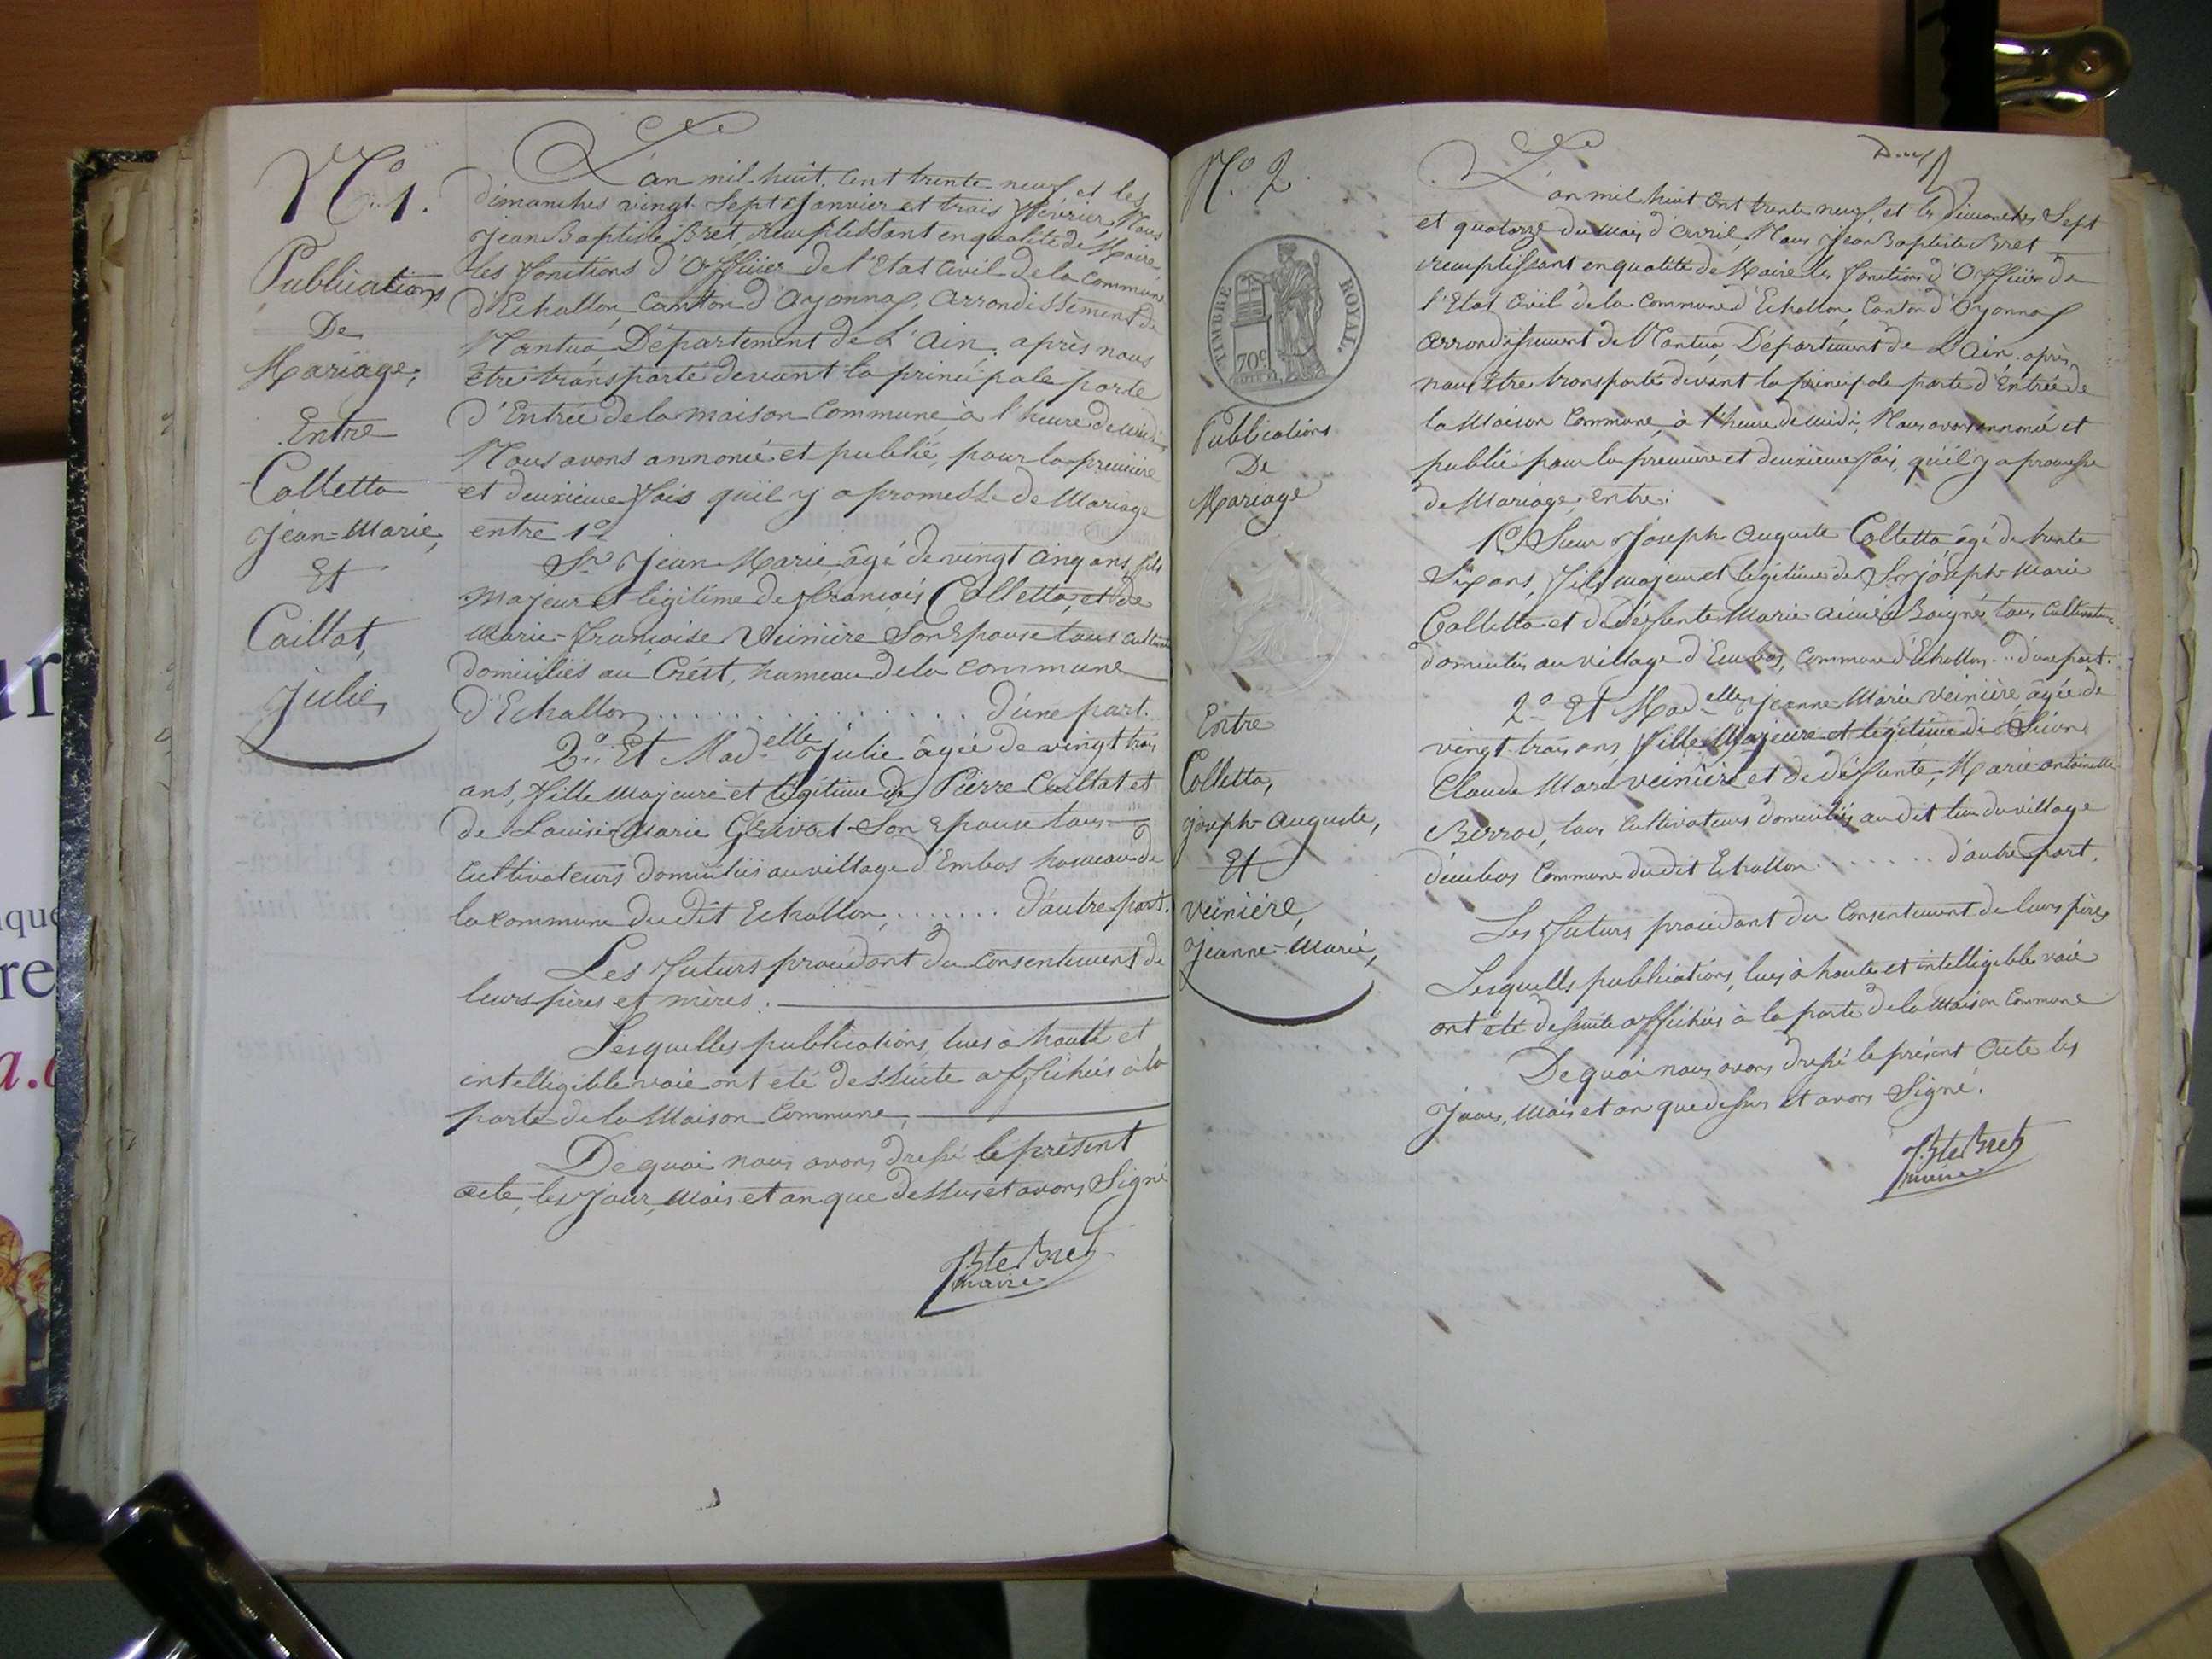 N.º 1.
Publications
De
Mariage;
Entre
Colletta
Jean-Marie,
Et
Caillat,
Julie,
L'an mil huit Cent trente neuf et les
dimanches vingt Sept Janvier et trois Février, Nous
Jean Baptiste Bret, remplissant en qualité de Maire,
les fonctions d'Officier de l'Etat Civil de la Commune
d'Echallon, Canton d'Oyonnax, arrondissement de
Nantua, Département de L'Ain; après nous
être transporté devant la principale porte
d'Entrée de la maison Commune, à l'heure de midi,
Nous avons annoncé et publié, pour la première
et deuxième fois qu'il y a promesse de Mariage
entre 1º
Sr Jean Marie, âgé de vingt cinq ans, fils
Majeur et légitime de François Colletta, et de
Marie-Françoise Veinière Son Epouse tous
domiciliés au Crêt, hameau de la commune
d'Echallon, . . . . . . . . . . . . . . d'une part.
2º Et Madelle Julie âgée de vingt trois
ans, fille Majeure et légitime de Pierre Caillat et
de Louise-Marie Grivat Son Epouse tous
Cultivateurs domiciliés au village d'Embos hameau de
la commune du dit Echallon, . . . . . . . d'autre part.
Les futurs procédant du Consentement de
leurs pères et mères.
Lesquelles publications, lues à haute et
intelligible voix ont été dessuite affichées à la
porte de la Maison Commune,
De quoi nous avons dressé le présent
acte, les Jour, Mois et an que dessus et avons Signé
JBte Bret
maire
N.º 2.
TIMBRE ROYAL.
70c
Publications
De
Mariage
Entre
Colletta,
Joseph-Auguste,
Et
Veinière,
Jeanne-Marie,
L'an mil huit Cent trente neuf, et les Dimanches Sept
et quatorze du mois d'avril, Nous Jean Baptiste Bret
remplissant en qualité de Maire les fonctions d'Officier de
l'Etat Civil de la Commune d'Echallon, Canton d'Oyonnax
Arrondissement de Nantua, Département de L'Ain, après
nous Etre transporté devant la principale porte d'Entrée de
la Maison Commune, à l'heure de midi, Nous avons annoncé et
publié pour la première et deuxième fois, qu'il y a promesse
de Mariage, Entre:
1º Sieur Joseph Auguste Colletta âgé de trente
Six ans, fils majeur et légitime de Sr Joseph-Marie
Colletta et de défunte Marie Aimée tous Cultivateurs
domiciliés au village d'Embos, Commune d'Echallon . . . d'une part.
2º Et Madelle Jeanne Marie Veinière âgée de
vingt-trois ans, fille Majeure et légitime de Sieur
Claude Marie Veinière et de défunte, Marie-Antoinette
tous Cultivateurs domiciliés au dit lieu du village
d'Embos Commune du dit Echallon . . . . . . . d'autre part.
Les futurs procédant du Consentement de leurs pères
Lesquelles publications, lues à haute et intelligible voix
ont été dessuite affichées à la porte de la Maison Commune
De quoi nous avons dressé le présent Acte les
Jours, Mois et an que dessus et avons Signé.
JBte Bret
maire